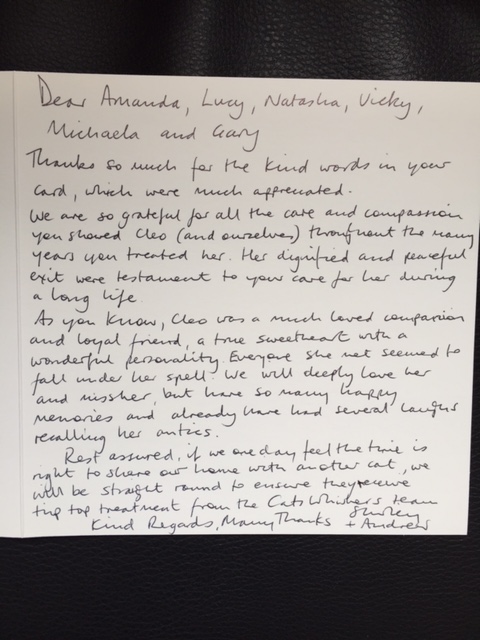 Dear Amanda, Lucy, Natasha, Vicky,
Michaela and Gary
Thanks so much for the kind words in your
card, which were much appreciated.
We are so grateful for all the care and compassion
you showed Cleo (and ourselves) throughout the many
years you treated her. Her dignified and peaceful
exit were testament to your care for her during
a long life.
As you know, Cleo was a much loved companion
and loyal friend, a true sweetheart with a
wonderful personality. Everyone she met seemed to
fall under her spell. We will deeply love her
and miss her, but have so many happy
memories and already have had several laughs
recalling her antics.
Rest assured, if we one day feel the time is
right to share our home with another cat, we
will be straight round to ensure they receive
tip top treatment from the Cats Whiskers team
Kind Regards, Many Thanks + Andrew